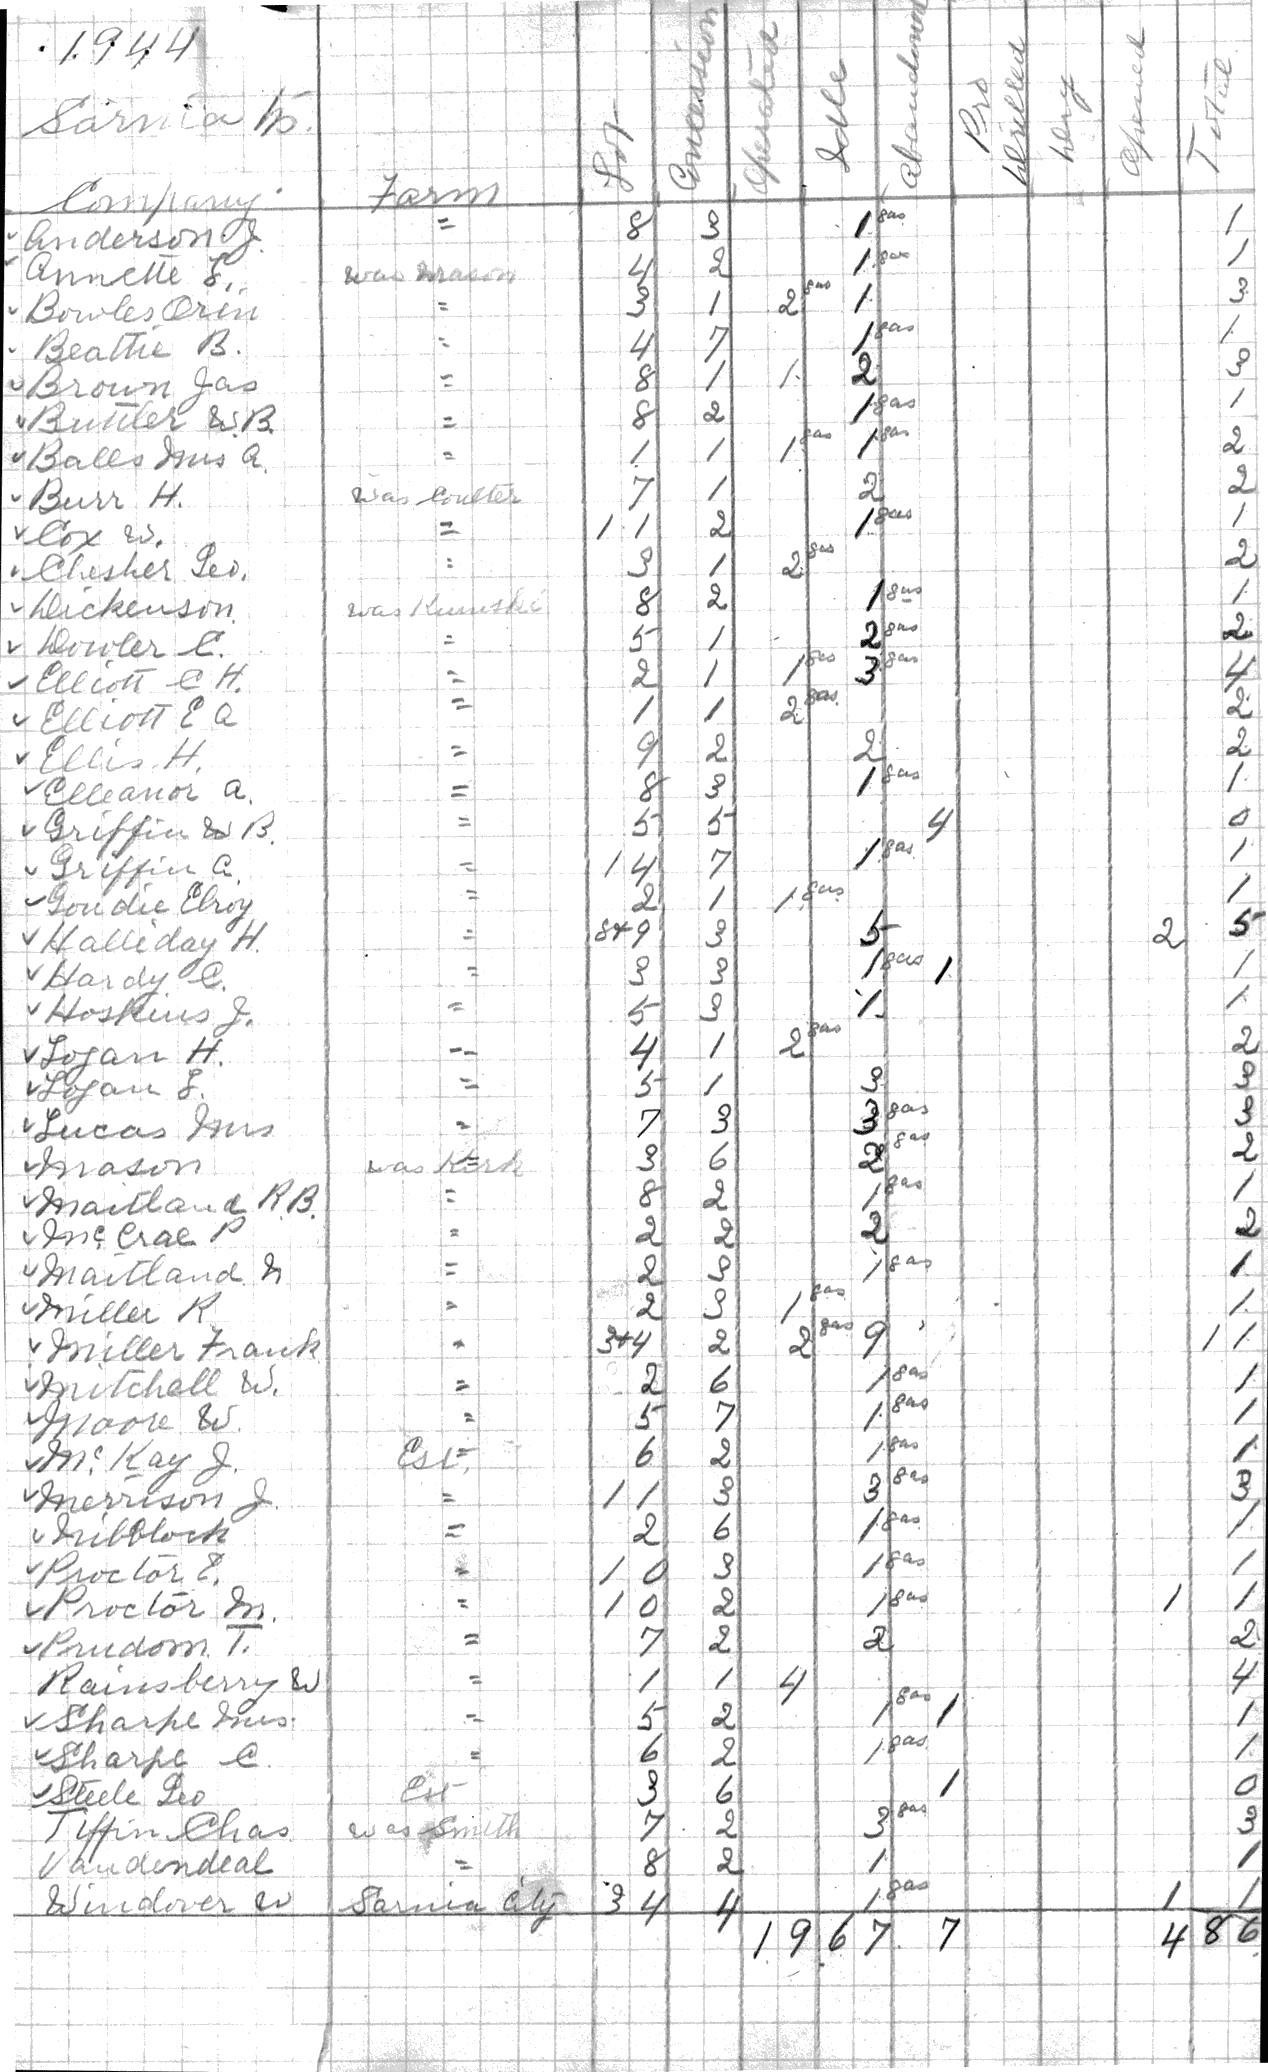 1944
Sarnia Tp.
Company Farm Lot Concession Operated Idle Abandoned Pro Drilled Dry Opened Total
Anderson J. = 8 3 1 gas 1
Annette E. was Mason 4 2 1 gas 1
Bowles Orin = 3 1 2 gas 1 3
Beattie B. = 4 7 1 gas 1
Brown Jas = 8 1 1 2 3
Buttler W.B. = 8 2 1 gas 1
Balls Mrs A. = 1 1 1 gas 1 gas 2
Burr H. was Coulter 7 1 2 2
Cox W. = 11 2 1 gas 1
Chesher Geo. = 3 1 2 gas 2
Dickenson was 8 2 1 gas 1
Dowler C. = 5 1 2 gas 2
Elliott C H. = 2 1 1 gas 3 gas 4
Elliott E A = 1 1 2 gas 2
Ellis H. = 9 2 2 2
Elleanor A. = 8 3 1 gas 1
Griffin W B. = 5 5 4 0
Griffin C. = 14 7 1 gas 1
Goudie Elroy = 2 1 1 gas 1
Halliday H. = 8+9 3 5 2 5
Hardy C. = 3 3 1 gas 1 1
Hoskins J. = 5 3 1 1
Logan H. = 4 1 2 gas 2
Logan E. = 5 1 3 3
Lucas Mrs = 7 3 3 gas 3
Mason was Kerk 3 6 2 gas 2
Maitland R.B. = 8 2 1 gas 1
McCrae P = 2 2 2 2
Maitland N = 2 3 1 gas 1
Miller R. = 2 3 1 gas 1
Miller Frank = 3+4 2 2 gas 9 11
Mitchell W. = 2 6 1 gas 1
Moore W. = 5 7 1 gas 1
McKay J. Est. = 6 2 1 gas 1
Merrison J. = 11 3 3 gas 3
Nibblock = 2 6 1 gas 1
Proctor E. = 10 3 1 gas 1
Proctor M. = 10 2 1 gas 1 1
Prudom T. = 7 2 2 2
Rainsberry W = 1 1 4 4
Sharpe Mrs. = 5 2 1 gas 1 1
Sharpe C. = 6 2 1 gas 1
Steele Geo Est 3 6 1 0
Tiffin Chas was Smith 7 2 3 gas 3
Vandendeal = 8 2 1 1
Windover W Sarnia City 34 4 1 gas 1 1
19 67 7 4 86